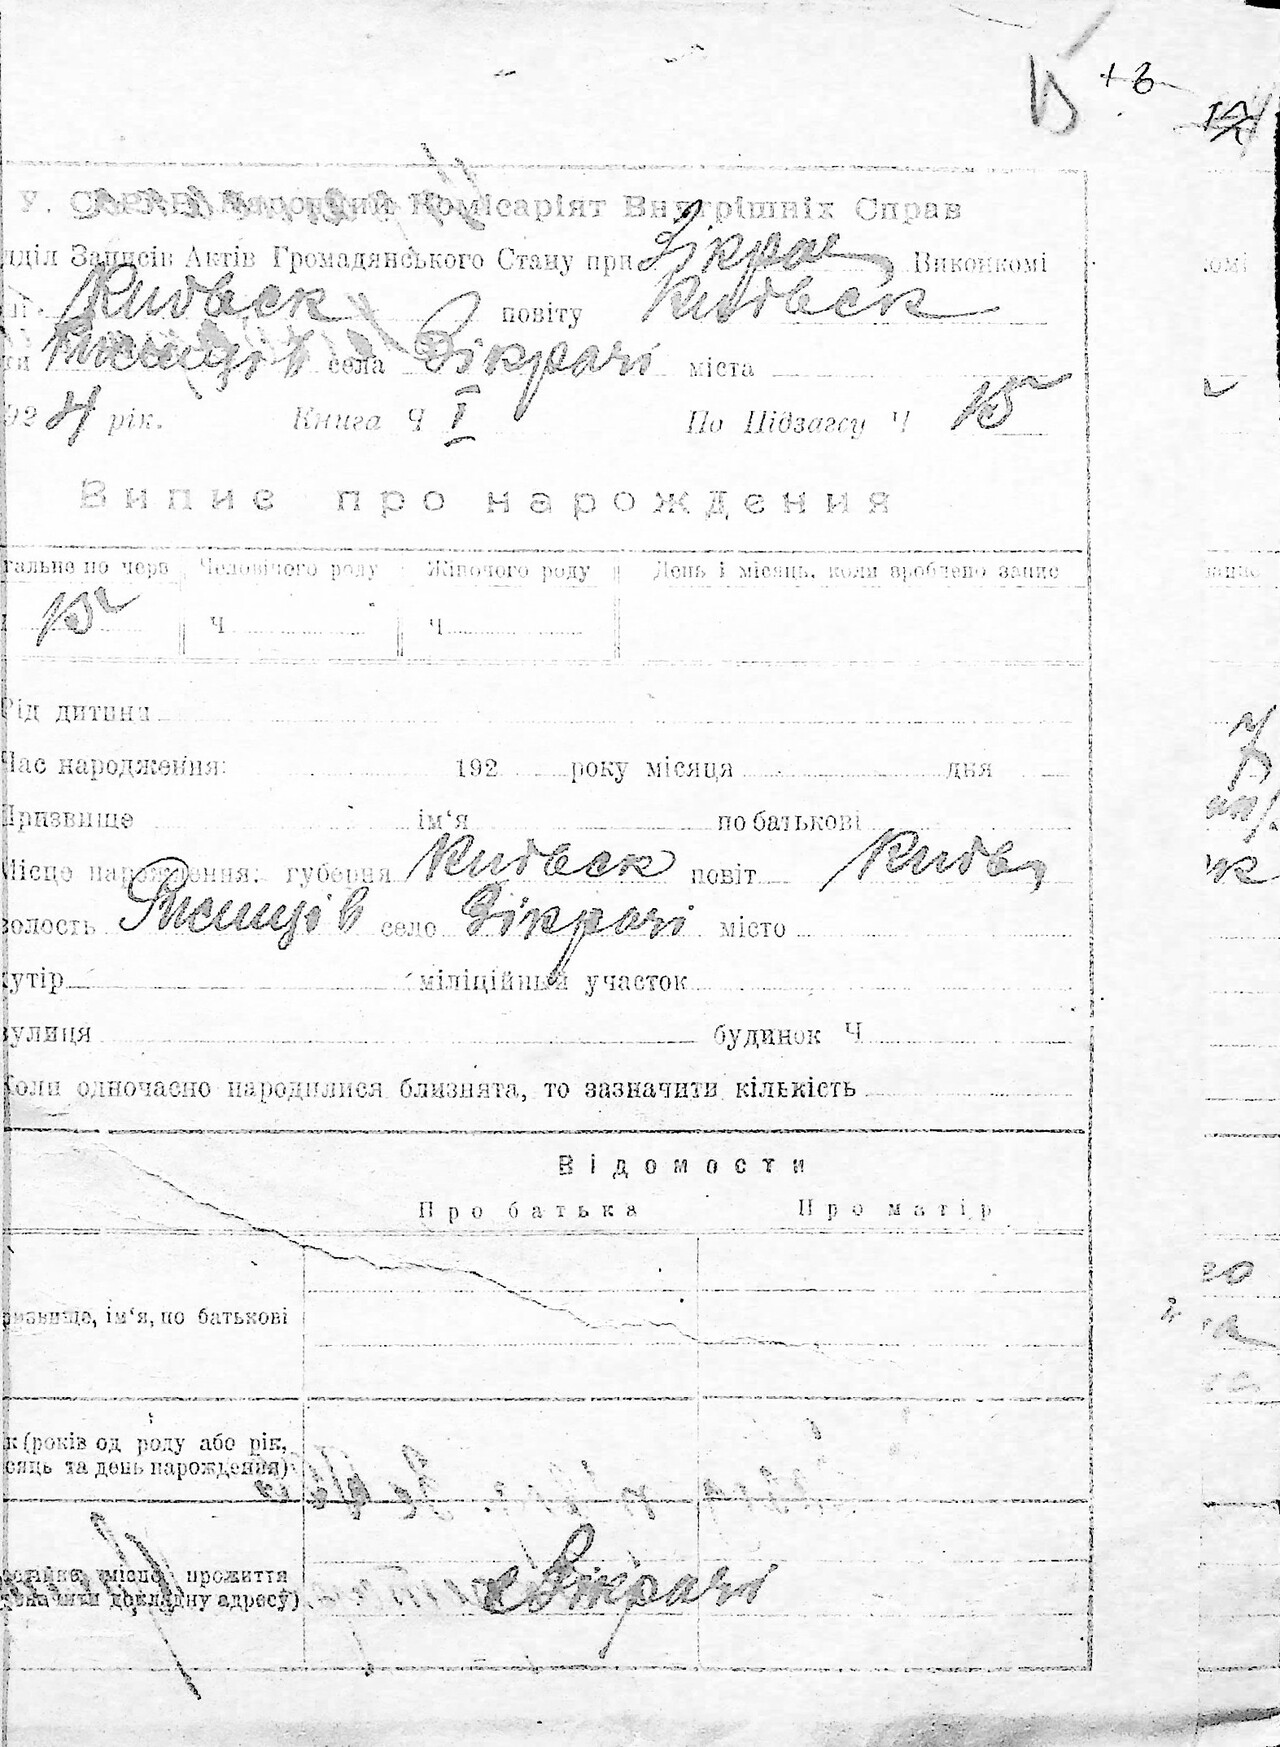 + 3
У. С. Р. Р. Народний Комісаріят Внутрішніх Справ
дділ Записів Актів Громадянського Стану при Зікрач Виконкомі
Київск повіту Київск
ти Ржищів села Зікрачі міста
924 рік. Книга Ч I По Підзагсу Ч 15
Випис про нарождения
гальне по черв Человічого роду Жіночого роду День і місяць, коли зроблено запис
15 Ч Ч
Рід дитини
Час народження: 192 року місяця дня
Призвище ім‘я по батькові
Місце нарождення: губерня Київск повіт Київ
волость Ржищів село Зікрачі місто
хутір міліційный участок
вулиця будинок Ч
Коли одночасно народилися близнята, то зазначити кількість
Відомости
Про батька Про матір
ризвище, ім‘я, по батькові
к (років од роду або рік,
сяць та день нарождення)
стійне місце прожиття
докладну адресу) с Зікрачі